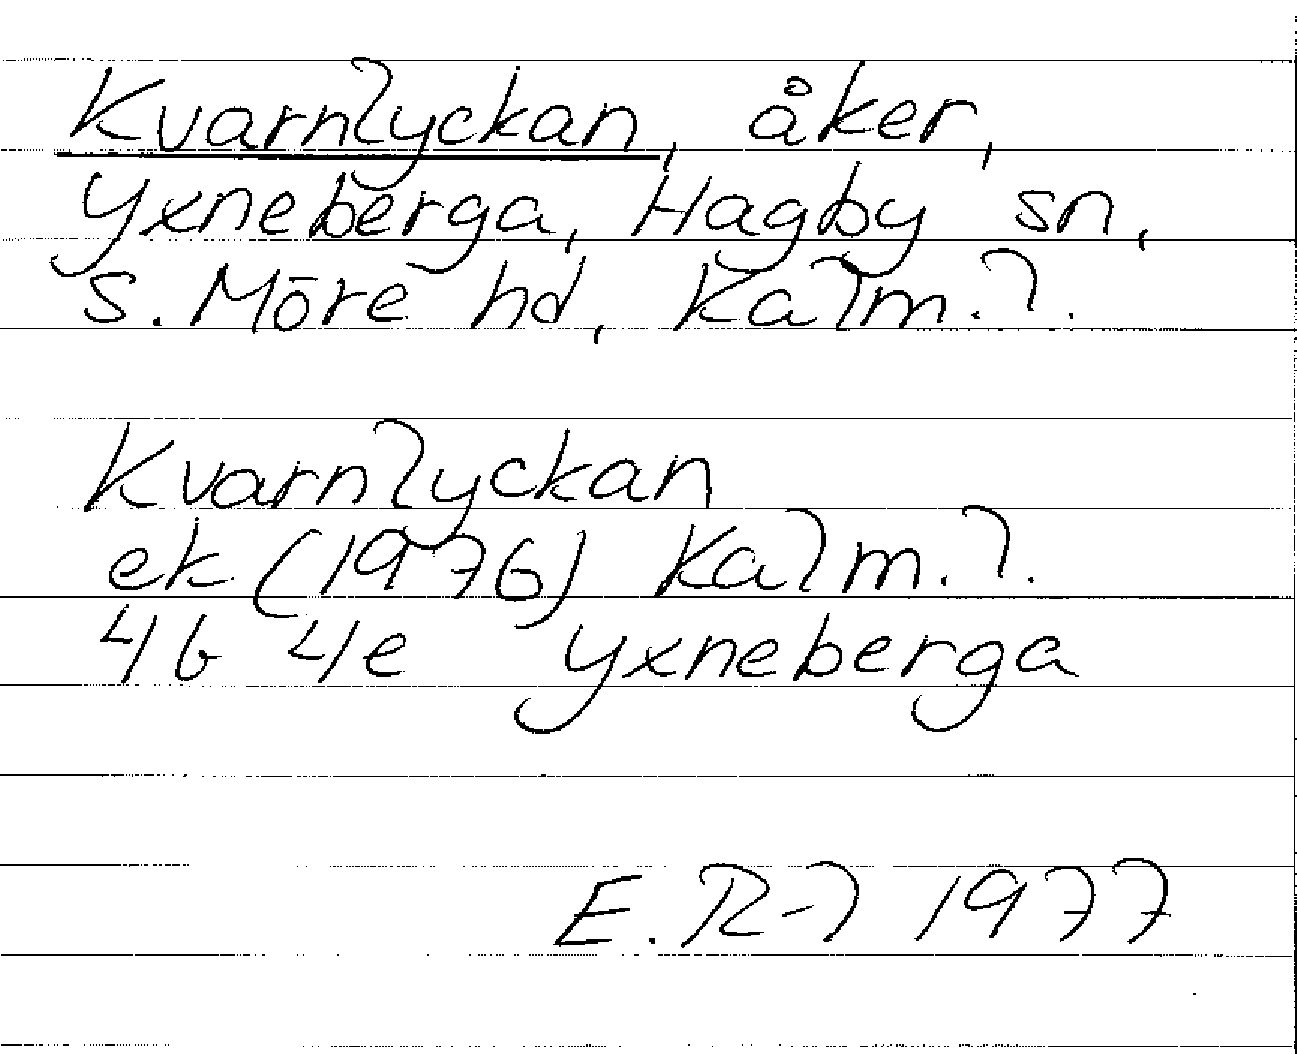 Kvarnlyckan, åker,
Yxneberga, Hagby sn,
S. Möre hd, Kalm. l.
Kvarnlyckan
ek (1976) Kalm. l.
4b 4e Yxneberga
E. R-l 1977